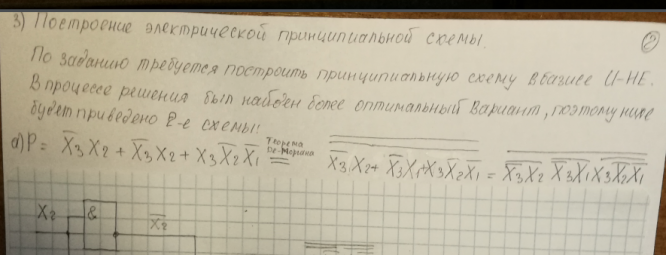 3) Построение электрической принципиальной схемы. ②
По заданию требуется построить принципиальную схему в базисе И-НЕ.
В процессе решения был найден более оптимальный вариант, поэтому ниже
будет приведено 2-е схемы:
а) P = X̅₃X₂ + X̅₃X₂ + X₃X̅₂X̅₁ Теорема Де-Моргана = X̅₃X₂ + X̅₃X₁ + X₃X̅₂X̅₁ = X̅₃X₂ X̅₃X₁ X₃X̅₂X̅₁
X₂ & X̅₂